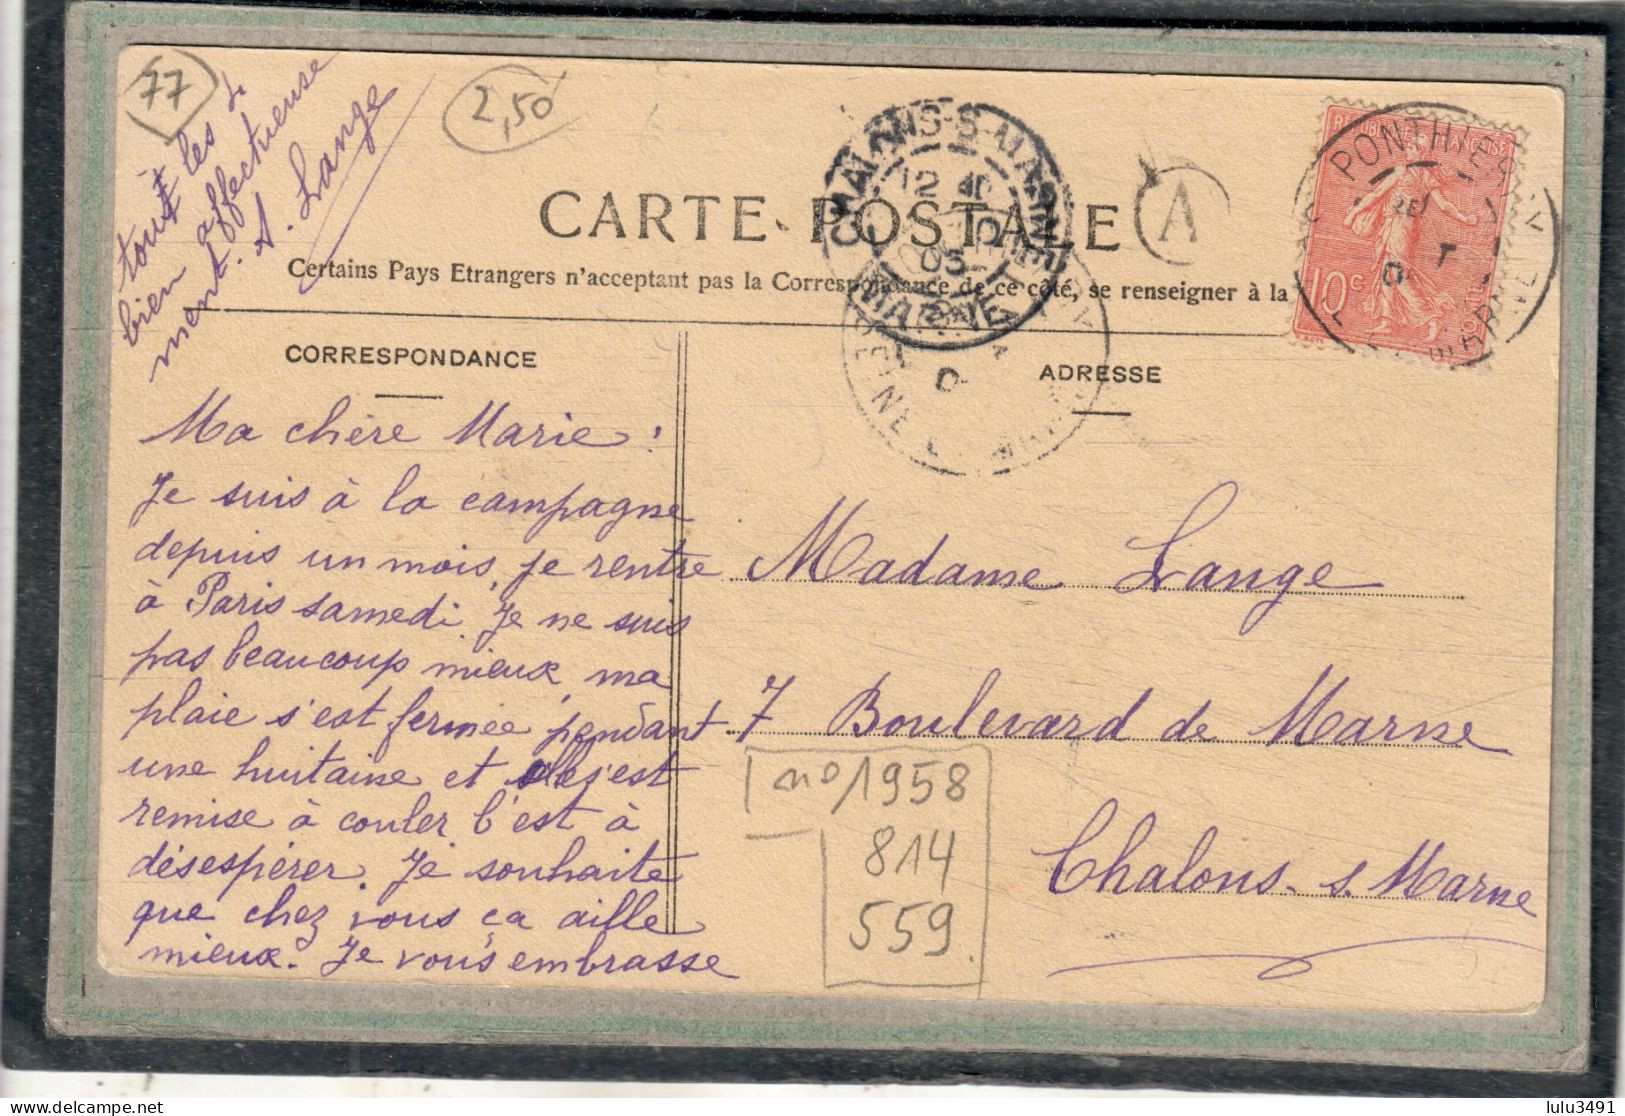 77
2,50
tous les 4
bien affectueuse
ment. A. Lange
CARTE POSTALE
A
Certains Pays Etrangers n'acceptent pas la Correspondance de ce côté, se renseigner à la
CHALONS-S-MARNE
12
05
MARNE
SEINE
PONTHIER
REPUBLIQUE FRANÇAISE
10c
CORRESPONDANCE
ADRESSE
Ma chère Marie :
Je suis à la campagne
depuis un mois, je rentre
à Paris samedi. Je ne suis
pas beaucoup mieux, ma
plaie s'est fermée pendant
une huitaine et elle s'est
remise à couler c'est à
désespérer. Je souhaite
que chez vous ça aille
mieux. Je vous embrasse
Madame Lange
7 Boulevard de Marne
Chalons. s. Marne
no 1958
814
559.
delcampe.net
lulu3491